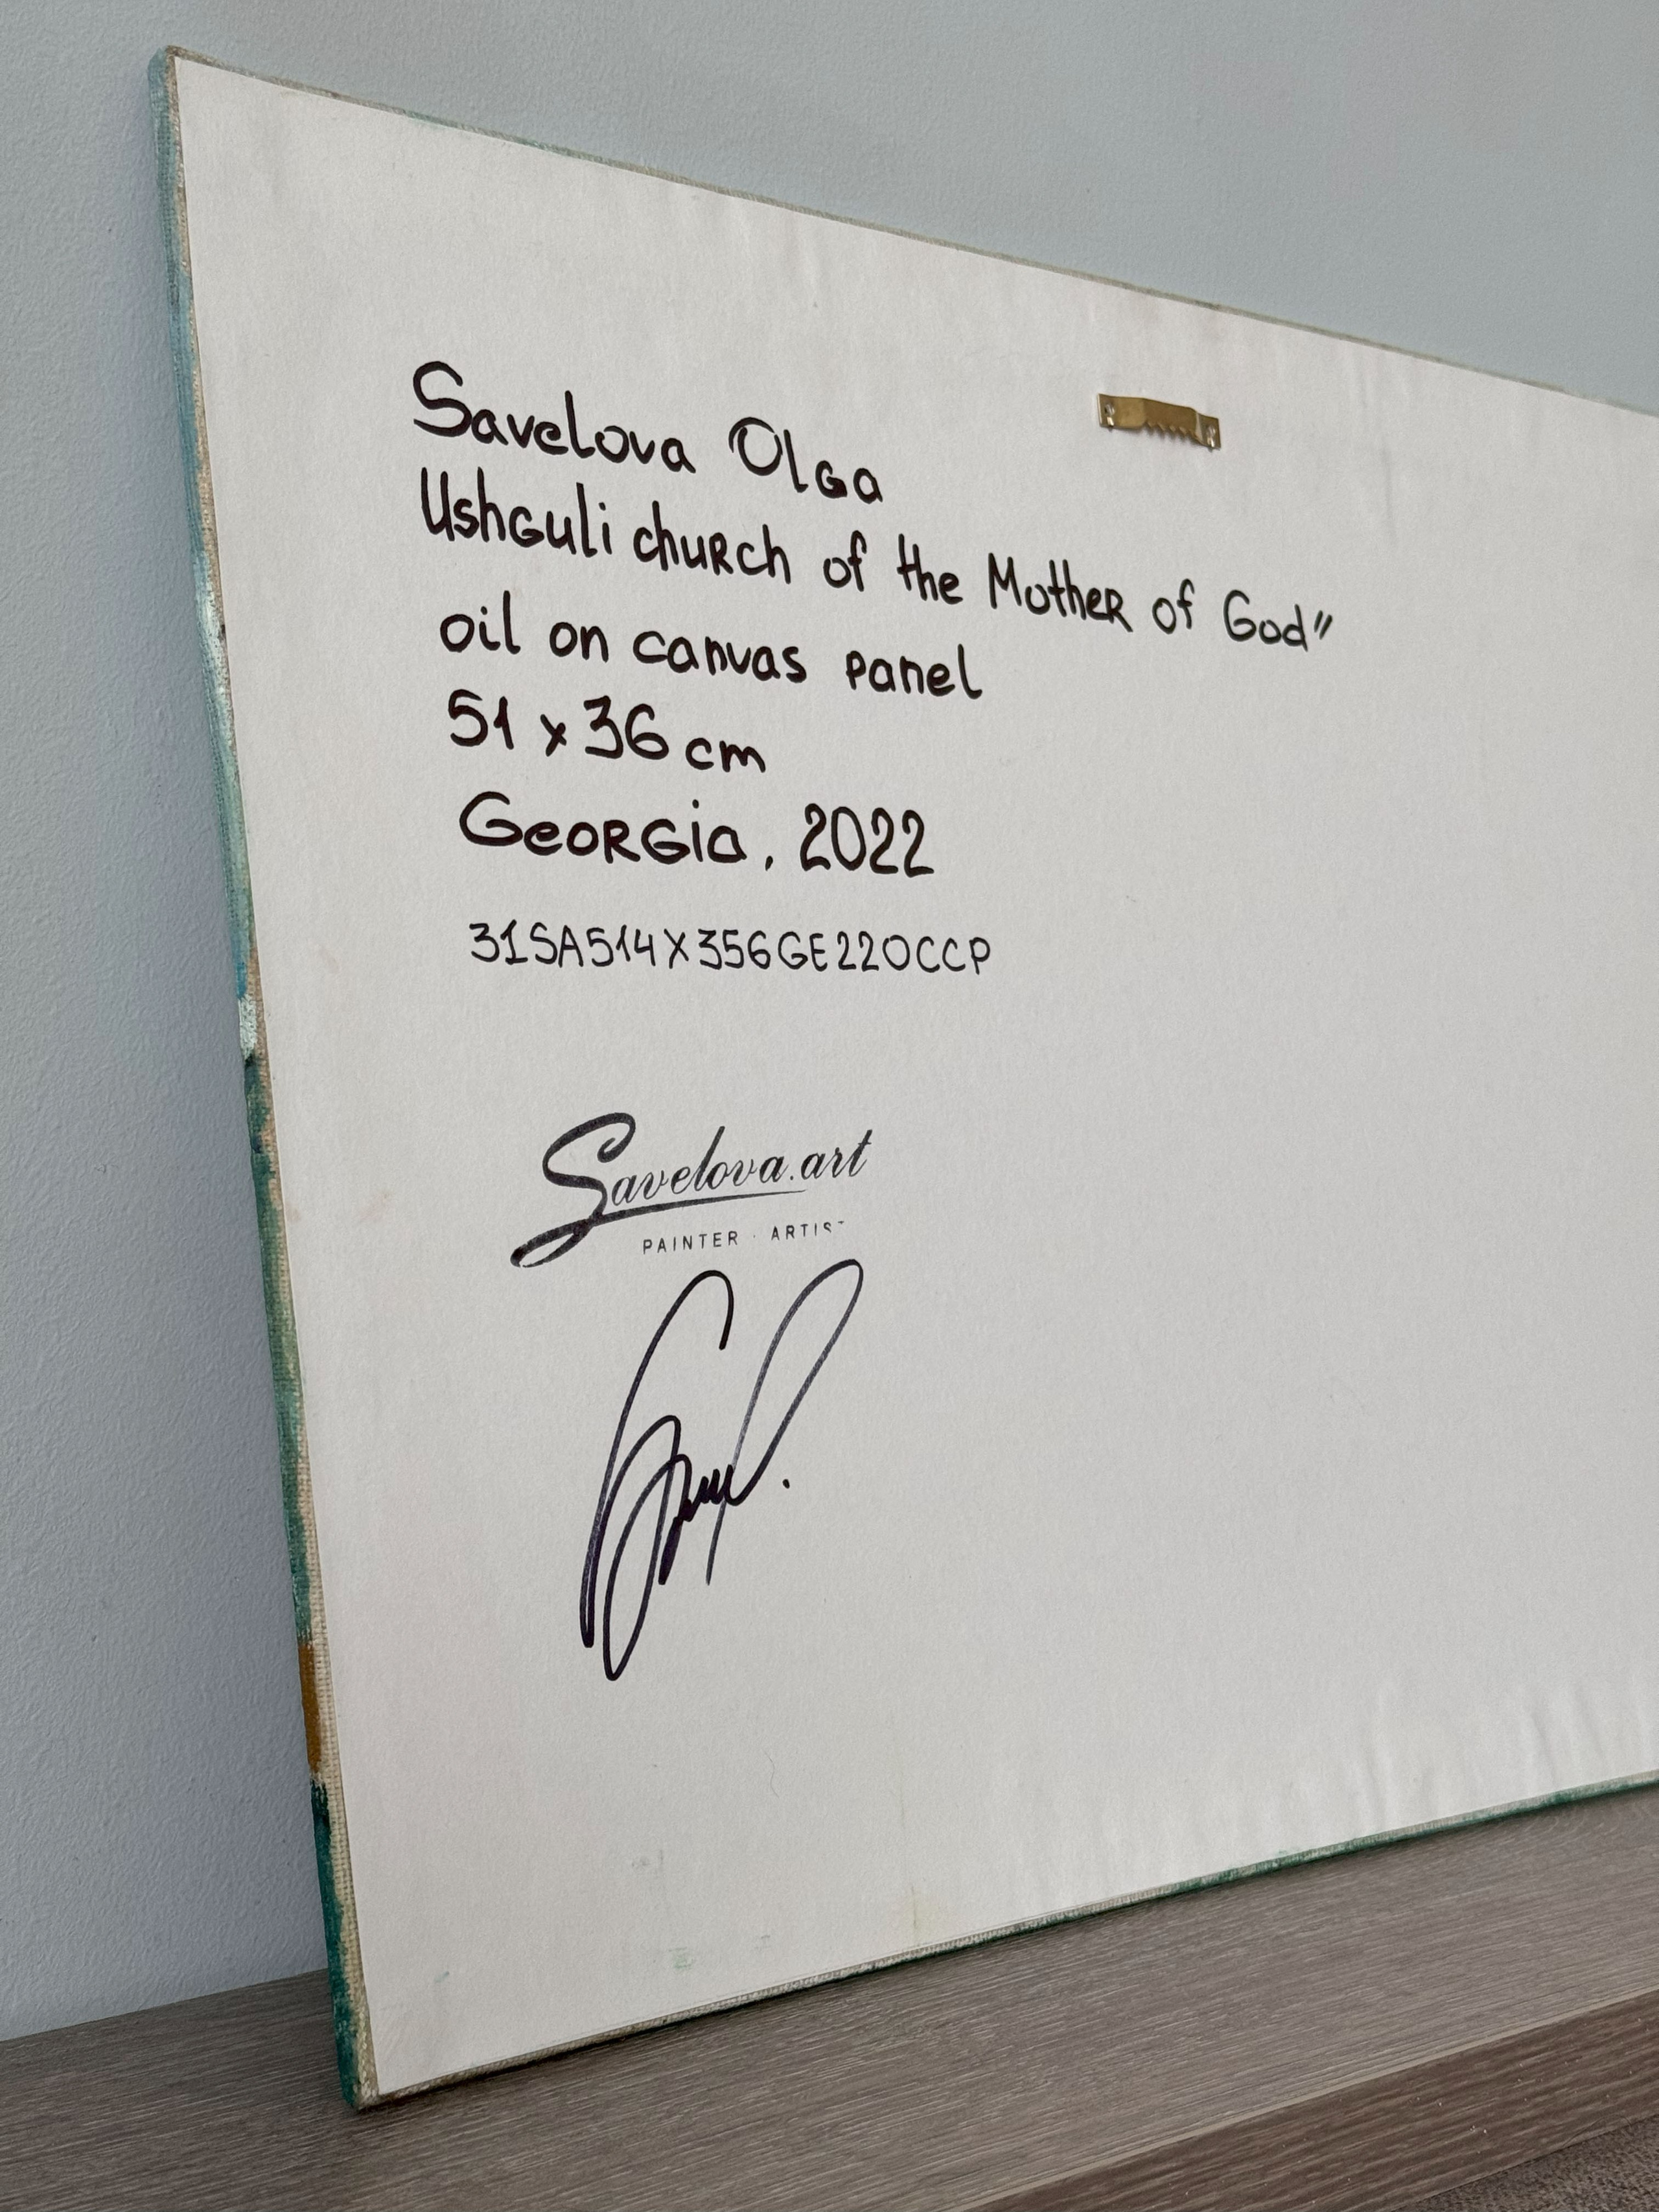 Savelova Olga
Ushguli church of the Mother of God"
oil on canvas panel
51 x 36 cm
Georgia, 2022
31SA514X356GE22OCCP
Savelova.art
PAINTER · ARTIST